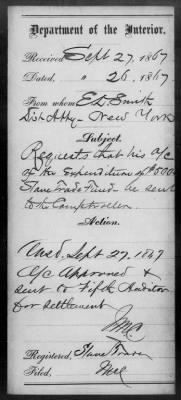 Department of the Interior.
Received Sept 27. 1867
Dated, " 26. 1867
From whom E D. Smith
Dist Atty - New York
Subject.
Requests that his a/c
of the Expenditure of $5000
Slave Trade Fund be sent
to the Comptroller.
Action.
Ansd. Sept 27. 1867
A/c Approved &
sent to Fifth Auditor
for settlement
Registered, Slave Trade
Filed,